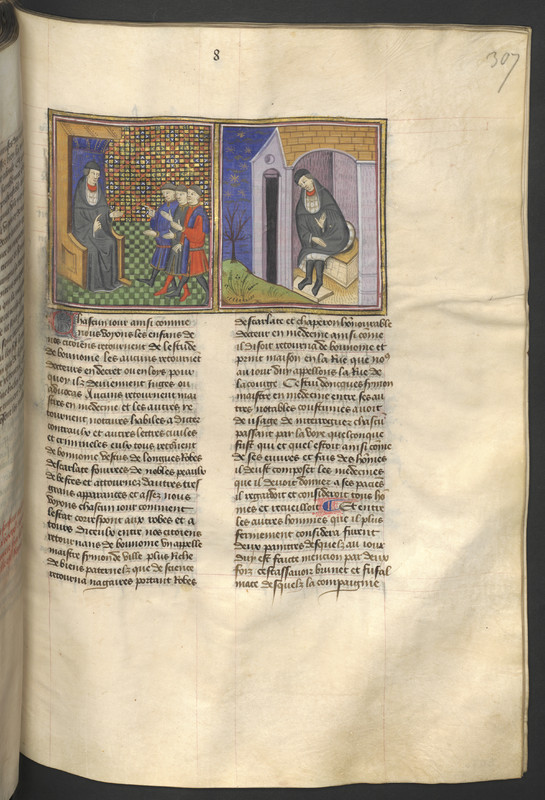 8
307
Chascun iour ainsi comme
nous voyons les enfans de
nos citoiens retournent de lestude
de bouuoime les aucuns retournent
docteurs en decret ou en loys pour
quoy ilz deuiennent iuges ou
aduocas Aucuns retournent mai
stres en medecine et les autres re
tournent notaires habiles a dicter
contraulx et autres lettres ciuiles
et crimineles eulx tous retournent
de bouuoime vestus de longues robes
descarlate fourrees de nobles peaulx
de bestes et attournez dautres tres
grans apparances et assez nous
voyons chascun iour comment
leffect correspont aux robes et a
tours Dicculx entre nos citoiens
retournans de bouuoime vn appelle
maistre symon de ville plus riche
de biens paternelz que de science
retourna nagaires portant robes
descarlate et chaperon honnourable
docteur en medecine ainsi come
il disoit retourna de bouuoime et
print maison en la Rue que no9
au iour duy appellons la Rue de
la courge Cestui doncques symon
maistre en medecine entre ses au
tres notables coustumes auoit
de usage de interroguer chascun
passant par la voye quelconque
fust qui et quel estoit ainsi come
de ses euures et fais des homes
il deust composer les medecines
que il deuoit donner a ses paciés
il regardoit et consideroit tous ho
mes et recueilloit Et entre
les autres hommes que il plus
fermement considera furent
deux paintres desquelz au iour
duy est faicte mencion par deux
foiz cestassauoir brunet et bufal
mace desquelz la compaignie